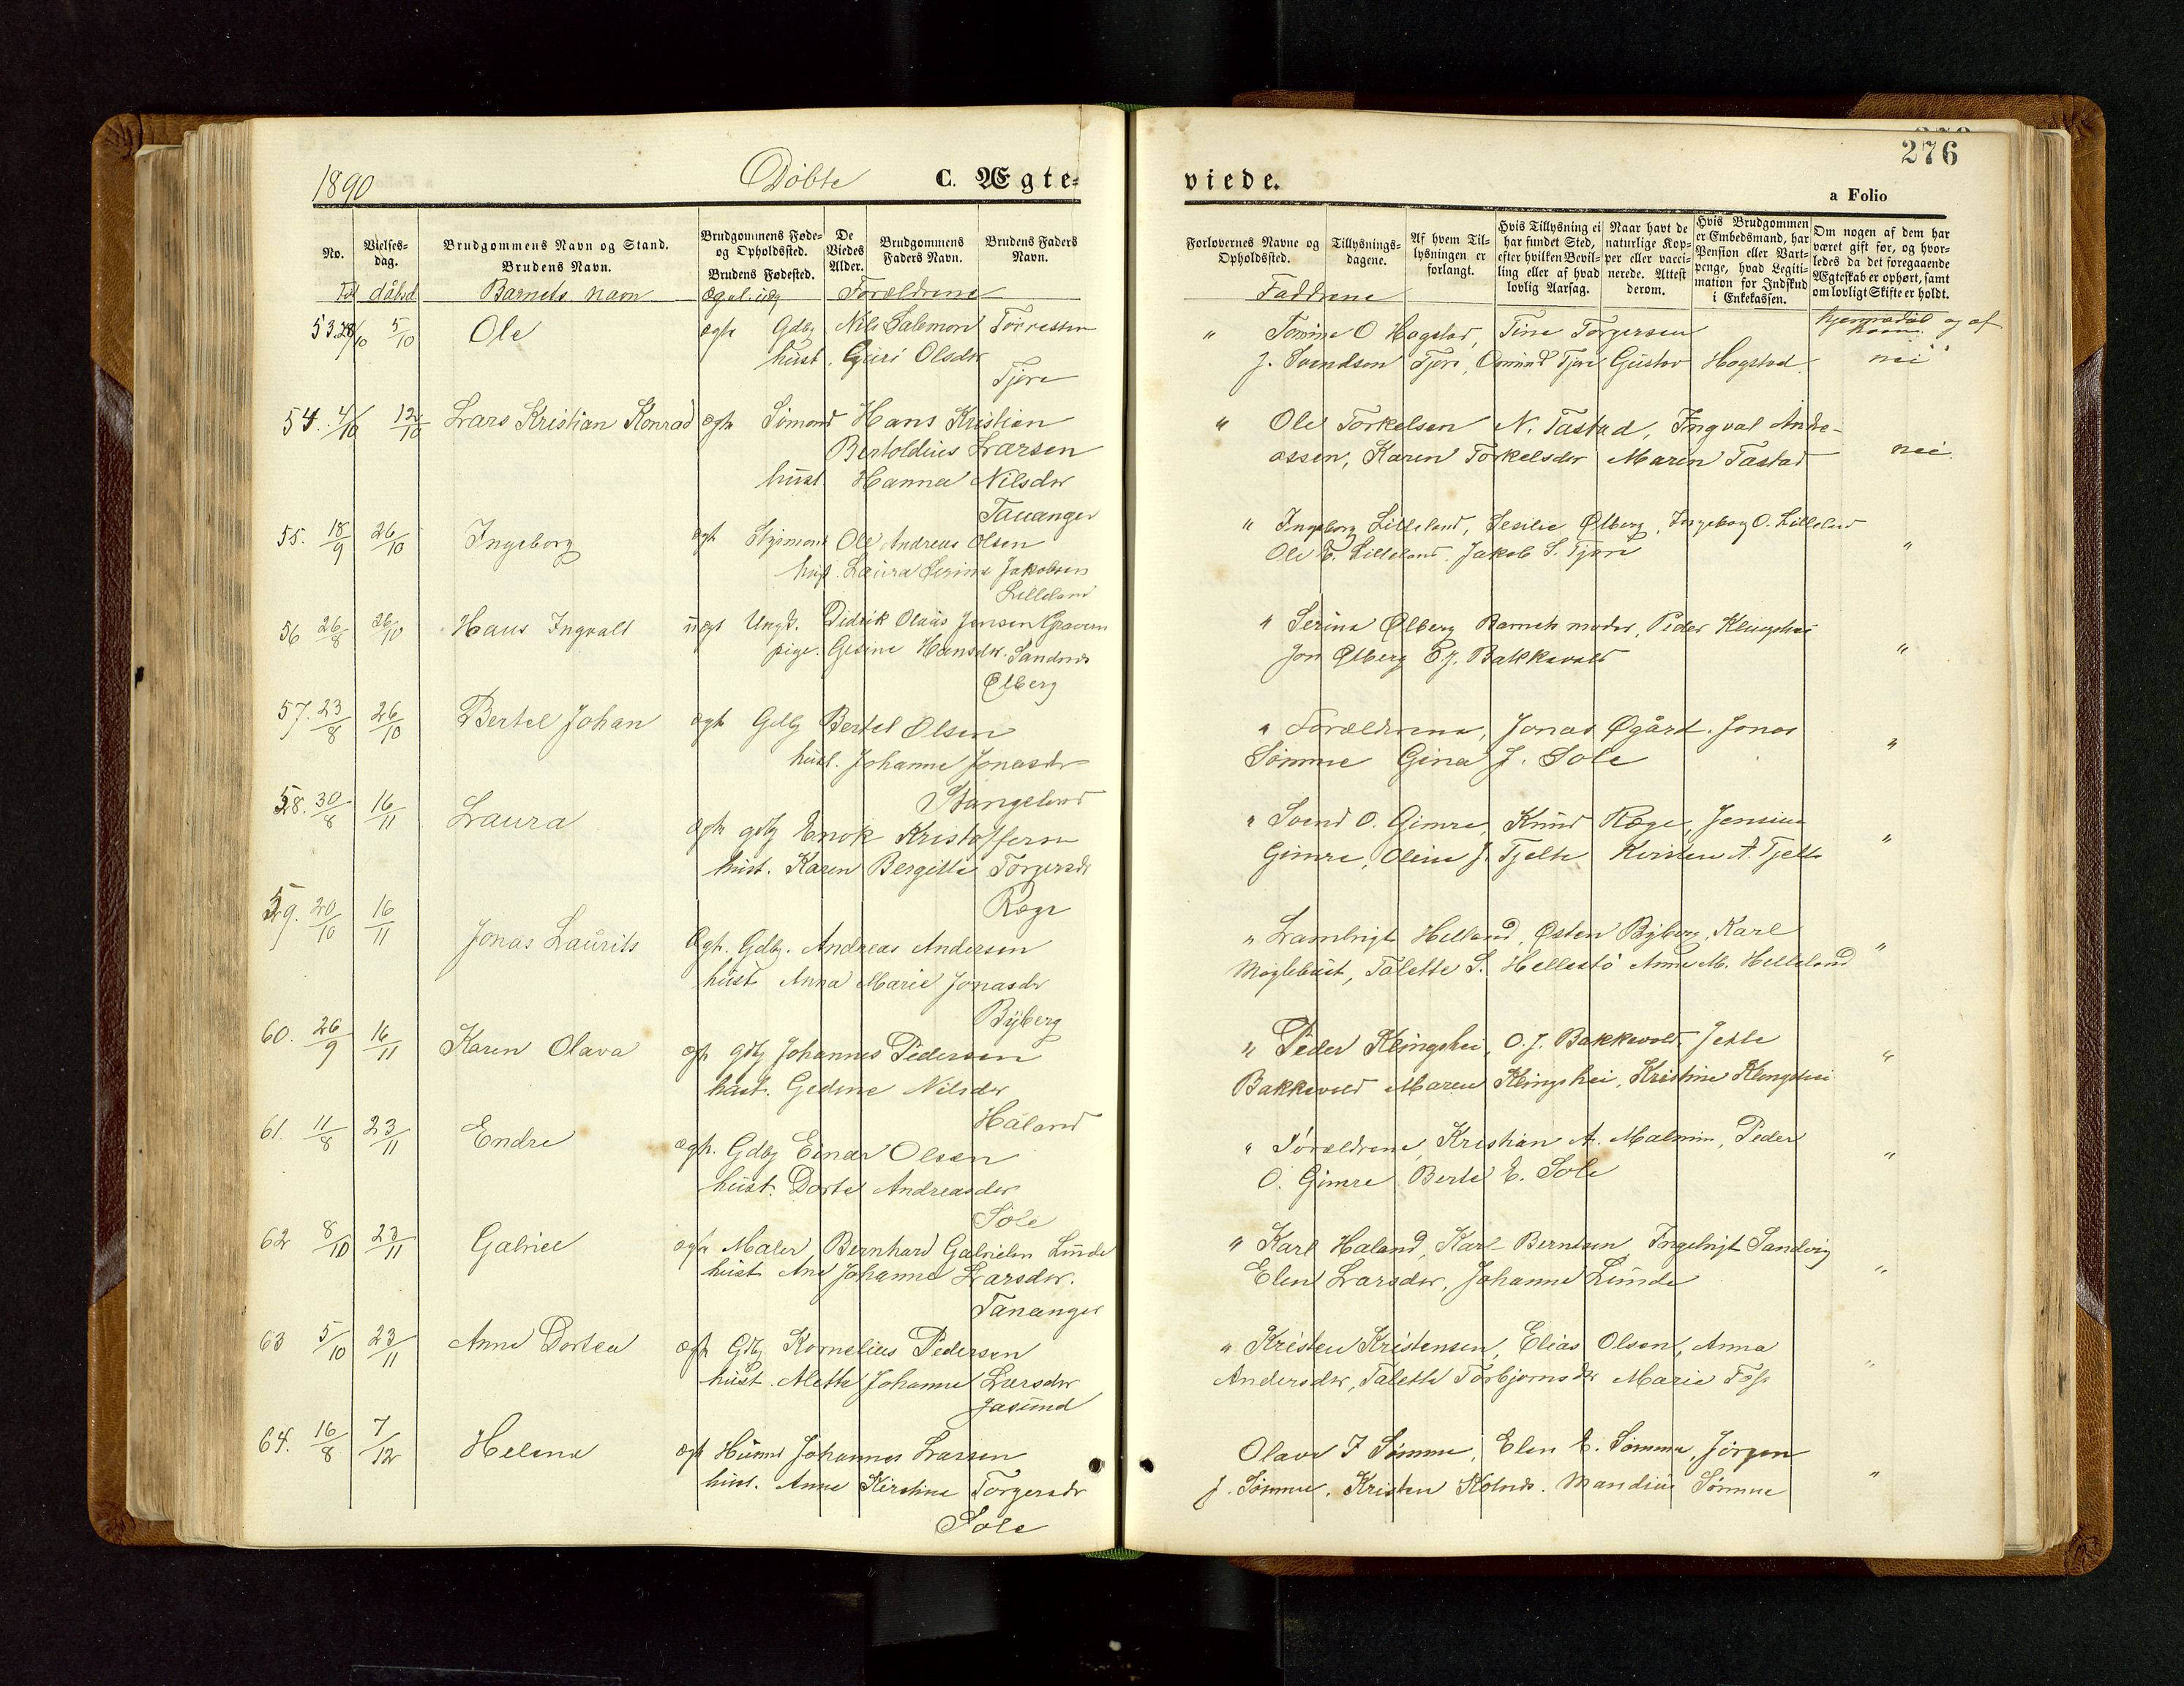 1890 Döbte C. Ægte-
No. Vielses-dag. Brudgommens Navn og Stand. Brudens Navn. Brudgommens Føde- og Opholdssted. Brudens Fødested. De Viedes Alder. Brudgommens Faders Navn. Brudens Faders Navn.
Föd dåbsd Barnets navn Forældrene
53. 5/10 Ole ægte Gdbr Nils Salomon Torressen
hust. Guri Olsdtr
Tjora
54. 4/10 12/10 Lars Kristian Konrad ægte Sömand Hans Kristian
Bertoldius Larsen
hust Hanna Nilsdtr
Tananger
55. 18/9 26/10 Ingeborg ægte Styrmand Ole Andreas Olsen
hust. Laura Serine Jakobsen
Lilleland
56 26/8 26/10 Hans Ingvald uægt Ungk. Didrik Olaus Jensen Gravern
pige. Gesine Hansdtr. Sandnes
Ölberg
57. 23/8 26/10 Bertel Johan ægte Gdbr Bertel Olsen
hust. Johanne Jonasdtr
Stangeland
58. 30/8 16/11 Laura ægte gdbr Enok Kristoffersen
hust. Karen Bergitte Torgersdtr
Ræge
59. 20/10 16/11 Jonas Laurits ægte. Gdbr. Andreas Andersen
hust Anna Marie Jonasdtr
Byberg
60. 26/9 16/11 Karen Olava ægte gdbr Johannes Pedersen
hust. Gedine Nilsdtr
Håland
61. 11/8 23/11 Endre ægte. Gdbr Einar Olsen
hust. Dorte Andreasdtr
Sole
62 8/10 23/11 Gabriel ægte Maler Bernhard Gabrielsen Lunde
hust Ane Johanne Larsdtr.
Tananger
63 5/10 23/11 Anne Dortea ægte Gdbr Kornelius Pedersen
hust. Mette Johanne Larsdtr
Jasund
64. 16/8 7/12 Helena ægte Husmd Johannes Larsen
hust. Anne Kirstine Torgersdtr
Sole
276
viede.
a Folio
Forlovernes Navne og Opholdssted. Tillysnings-dagene. Af hvem Til-lysningen er forlangt. Hvis Tillysning ei har fundet Sted, efter hvilken Bevil-ling eller af hvad lovlig Aarsag. Naar havt de naturlige Kop-per eller vacci-nerede. Attest derom. Hvis Brudgommen er Embedsmand, har Pension eller Vart-penge, hvad Legiti-mation for Indskud i Enkekassen. Om nogen af dem har været gift før, og hvor-ledes da det foregaaende Ægteskab er ophørt, samt om lovligt Skifte er holdt.
Faddrene hjemmedöbt og af hvem
" Tomine O Hogstad, Tine Torgersen
J. Svendsen Tjora, Omund Tjora Gustav Hogstad nei
" Ole Torkelsen N. Tastad, Ingval Andre-
assen, Karen Torkelsdtr Maren Tastad nei
" Ingeborg Lilleland, Sesilie Ölberg, Ingeborg O. Lilleland
Ole E. Lilleland, Jakob S. Tjora "
" Serina Ölberg Barnets moder, Peder Klingshei
Jon Ölberg O. J. Bakkevold "
" Forældrene, Jonas Ögård. Jonas
Sömme Gina J. Sole "
" Svend O. Gimre, Knud Ræge, Jensine
Gimre, Oline J. Tjelta Kirsten A. Tjelta "
" Lambrigt Helland, Östen Byberg, Karl
Möglebust, Talette S. Hellestö Anne M. Helleland "
" Peder Klingshei, O. J. Bakkevold, Jette
Bakkevold Maren Klingshei, Kristine Klingshei "
" Forældrene, Kristian A. Malmin, Peder
O. Gimre Berte E. Sole "
" Karl Haland, Karl Berntsen, Ingebrigt Sandvig
Elen Larsdtr, Johanne Lunde "
" Kristen Kristensen, Elias Olsen, Anna
Andersdtr, Talette Torbjornsdtr Marie Foss "
Olava I Sömme, Elen E. Sömme, Jörgen
J. Sömme, Kristen Kolnes. Mandius Sömme "